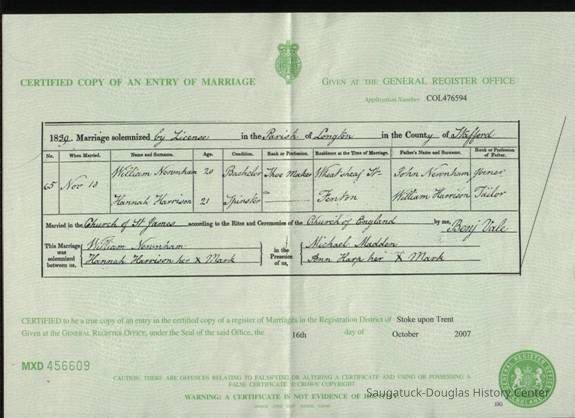 CERTIFIED COPY OF AN ENTRY OF MARRIAGE
GIVEN AT THE GENERAL REGISTER OFFICE
Application Number COL476594
1839. Marriage solemnized by License in the Parish of Longton in the County of Stafford
No. When Married. Name and Surname. Age. Condition. Rank or Profession. Residence at the Time of Marriage. Father's Name and Surname. Rank or Profession of Father.
65 Nov 10 William Newnham 20 Bachelor Shoe Maker Wheatsheaf St John Newnham Joiner
Hannah Harrison 21 Spinster Fenton William Harrison Tailor
Married in the Church of St James according to the Rites and Ceremonies of the Church of England by me, Benj Vale
This Marriage was solemnized between us,
William Newnham
Hannah Harrison her X Mark
in the Presence of us,
Michael Madden
Ann Harp her X Mark
CERTIFIED to be a true copy of an entry in the certified copy of a register of Marriages in the Registration District of Stoke upon Trent
Given at the GENERAL REGISTER OFFICE, under the Seal of the said Office, the 16th day of October 2007
MXD 456609
CAUTION: THERE ARE OFFENCES RELATING TO FALSIFYING OR ALTERING A CERTIFICATE AND USING OR POSSESSING A
FALSE CERTIFICATE ©CROWN COPYRIGHT
WARNING: A CERTIFICATE IS NOT EVIDENCE OF
Saugatuck-Douglas History Center